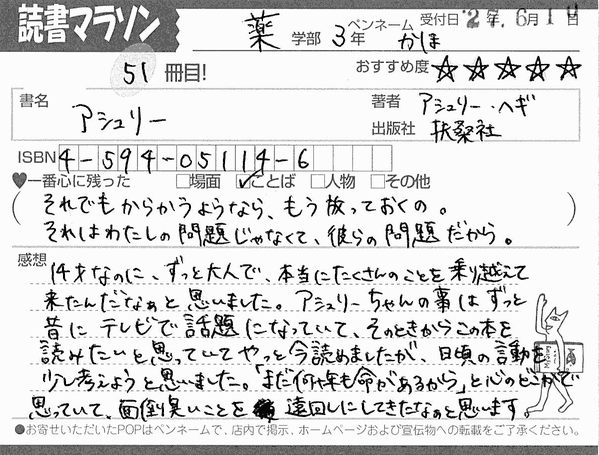 読書マラソン
薬 学部 3年 ペンネーム かしほ 受付日 '27.6月1日
51 冊目!
おすすめ度 ☆☆☆☆☆
書名 アシュリー
著者 アシュリー・ヘギ
出版社 扶桑社
ISBN 4-594-05114-6
♥一番心に残った □場面 ☑ことば □人物 □その他
(それでもからかうようなら、もう放っておくの。
それはわたしの問題じゃなくて、彼らの問題だから。)
感想
14才なのに、ずっと大人で、本当にたくさんのことを乗り越えて
来たんだなぁと思いました。アシュリーちゃんの事はずっと
昔にテレビで話題になっていて、そのときからこの本を
読みたいと思っていてやっと今読めましたが、日頃の言動を
少し考えようと思いました。「まだ何十年も命があるから」と心のどこかで
思っていて、面倒臭いことを遠回しにしてきたなぁと思います。
●お寄せいただいたPOPはペンネームで、店内で掲示、ホームページおよび宣伝物への転載をご了承ください。